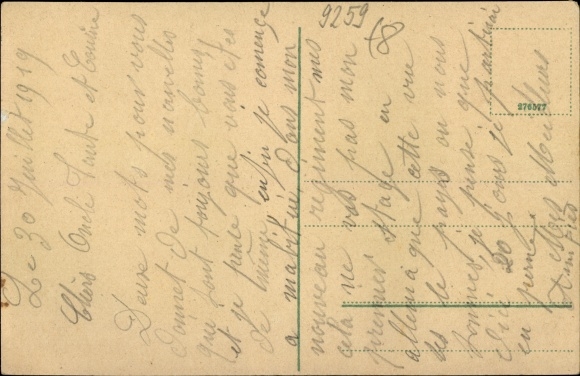 Le 30 Juillet 1919
Chers Oncle Tante et Cousine
Deux mots pour vous
donner de mes nouvelles
qui sont toujours bonnes
et je pense que vous êtes
de même enfin je comence
a mabituer, Dans mon
nouveau regiment mes
cela ne vos pas mon
premier Stage en
allemagne cette vue
des le pays ou nous
sommes, je pense que
d'ici 20 jours je partirai
en perm
Meilleurs
9259
276577